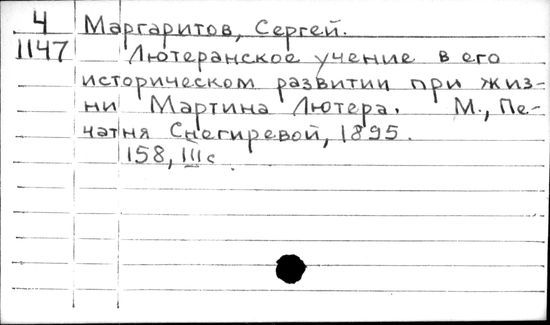 4 Маргаритов, Сергей.
1147 Лютеранское учение в его
историческом развитии при жиз-
ни Мартина Лютера. М., Пе-
чатня Снегиревой, 1895.
158, III с